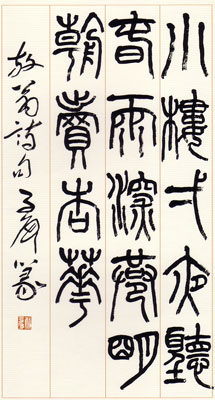 小樓弌夜聽
春雨深巷明
朝賣杏華
放翁詩句 篆